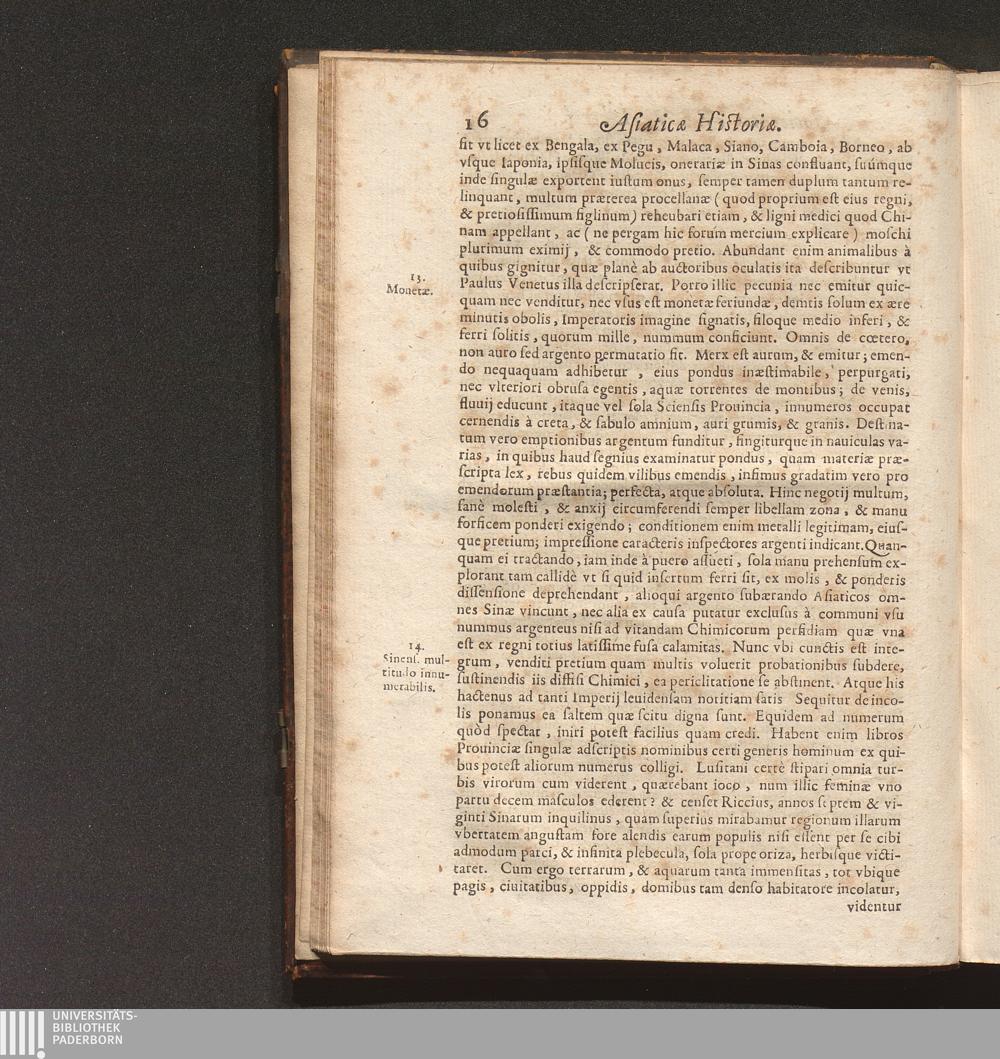 16 Aſiaticæ Hiſtoriæ.
ſit vt licet ex Bengala, ex Pegu, Malaca, Siano, Camboia, Borneo, ab
vſque Iaponia, ipſiſque Molucis, onerariæ in Sinas confluant, ſuúmque
inde ſingulæ exportent iuſtum onus, ſemper tamen duplum tantum re-
linquant, multum præterea procellanæ (quod proprium eſt eius regni,
& pretioſiſſimum figlinum) reheubari etiam, & ligni medici quod Chi-
nam appellant, ac (ne pergam hic forum mercium explicare) moſchi
plurimum eximij, & commodo pretio. Abundant enim animalibus à
quibus gignitur, quæ planè ab auctoribus oculatis ita deſcribuntur vt
13.
Monetæ.
Paulus Venetus illa deſcripſerat. Porro illic pecunia nec emitur quic-
quam nec venditur, nec vſus eſt monetæ feriundæ, demtis ſolum ex ære
minutis obolis, Imperatoris imagine ſignatis, filoque medio inſeri, &
ferri ſolitis, quorum mille, nummum conficiunt. Omnis de cœtero,
non auro ſed argento permutatio fit. Merx eſt aurum, & emitur; emen-
do nequaquam adhibetur, eius pondus inæſtimabile, perpurgati,
nec vlteriori obruſa egentis, aquæ torrentes de montibus; de venis,
fluuij educunt, itaque vel ſola Scienſis Prouincia, innumeros occupat
cernendis à creta, & ſabulo amnium, auri grumis, & granis. Deſtina-
tum vero emptionibus argentum funditur, fingiturque in nauiculas va-
rias, in quibus haud ſegnius examinatur pondus, quam materiæ præ-
ſcripta lex, rebus quidem vilibus emendis, infimus gradatim vero pro
emendorum præſtantia; perfecta, atque abſoluta. Hinc negotij multum,
ſanè moleſti, & anxij circumferendi ſemper libellam zona, & manu
forficem ponderi exigendo; conditionem enim metalli legitimam, eiuſ-
que pretium; impreſſione caracteris inſpectores argenti indicant. Quan-
quam ei tractando, iam inde à puero aſſueti, ſola manu prehenſum ex-
plorant tam callidè vt ſi quid inſertum ferri ſit, ex molis, & ponderis
diſſenſione deprehendant, alioqui argento ſubærando Aſiaticos om-
nes Sinæ vincunt, nec alia ex cauſa putatur excluſus à communi vſu
nummus argenteus niſi ad vitandam Chimicorum perfidiam quæ vna
14.
Sinenſ. mul-
titudo innu-
merabilis.
eſt ex regni totius latiſſime fuſa calamitas. Nunc vbi cunctis eſt inte-
grum, venditi pretium quam multis voluerit probationibus ſubdere,
ſuſtinendis iis diffiſi Chimici, ea periclitatione ſe abſtinent. Atque his
hactenus ad tanti Imperij leuidenſam noritiam ſatis Sequitur de inco-
lis ponamus ea ſaltem quæ ſcitu digna ſunt. Equidem ad numerum
quòd ſpectat, iniri poteſt facilius quam credi. Habent enim libros
Prouinciæ ſingulæ adſcriptis nominibus certi generis hominum ex qui-
bus poteſt aliorum numerus colligi. Luſitani certè ſtipari omnia tur-
bis virorum cum viderent, quærebant ioco, num illic feminæ vno
partu decem maſculos ederent? & cenſet Riccius, annos ſeptem & vi-
ginti Sinarum inquilinus, quam ſuperius mirabamur regionum illarum
vbertatem anguſtam fore alendis earum populis niſi eſſent per ſe cibi
admodum parci, & infinita plebecula, ſola prope oriza, herbiſque victi-
taret. Cum ergo terrarum, & aquarum tanta immenſitas, tot vbique
pagis, ciuitatibus, oppidis, domibus tam denſo habitatore incolatur,
videntur
UNIVERSITÄTS-
BIBLIOTHEK
PADERBORN